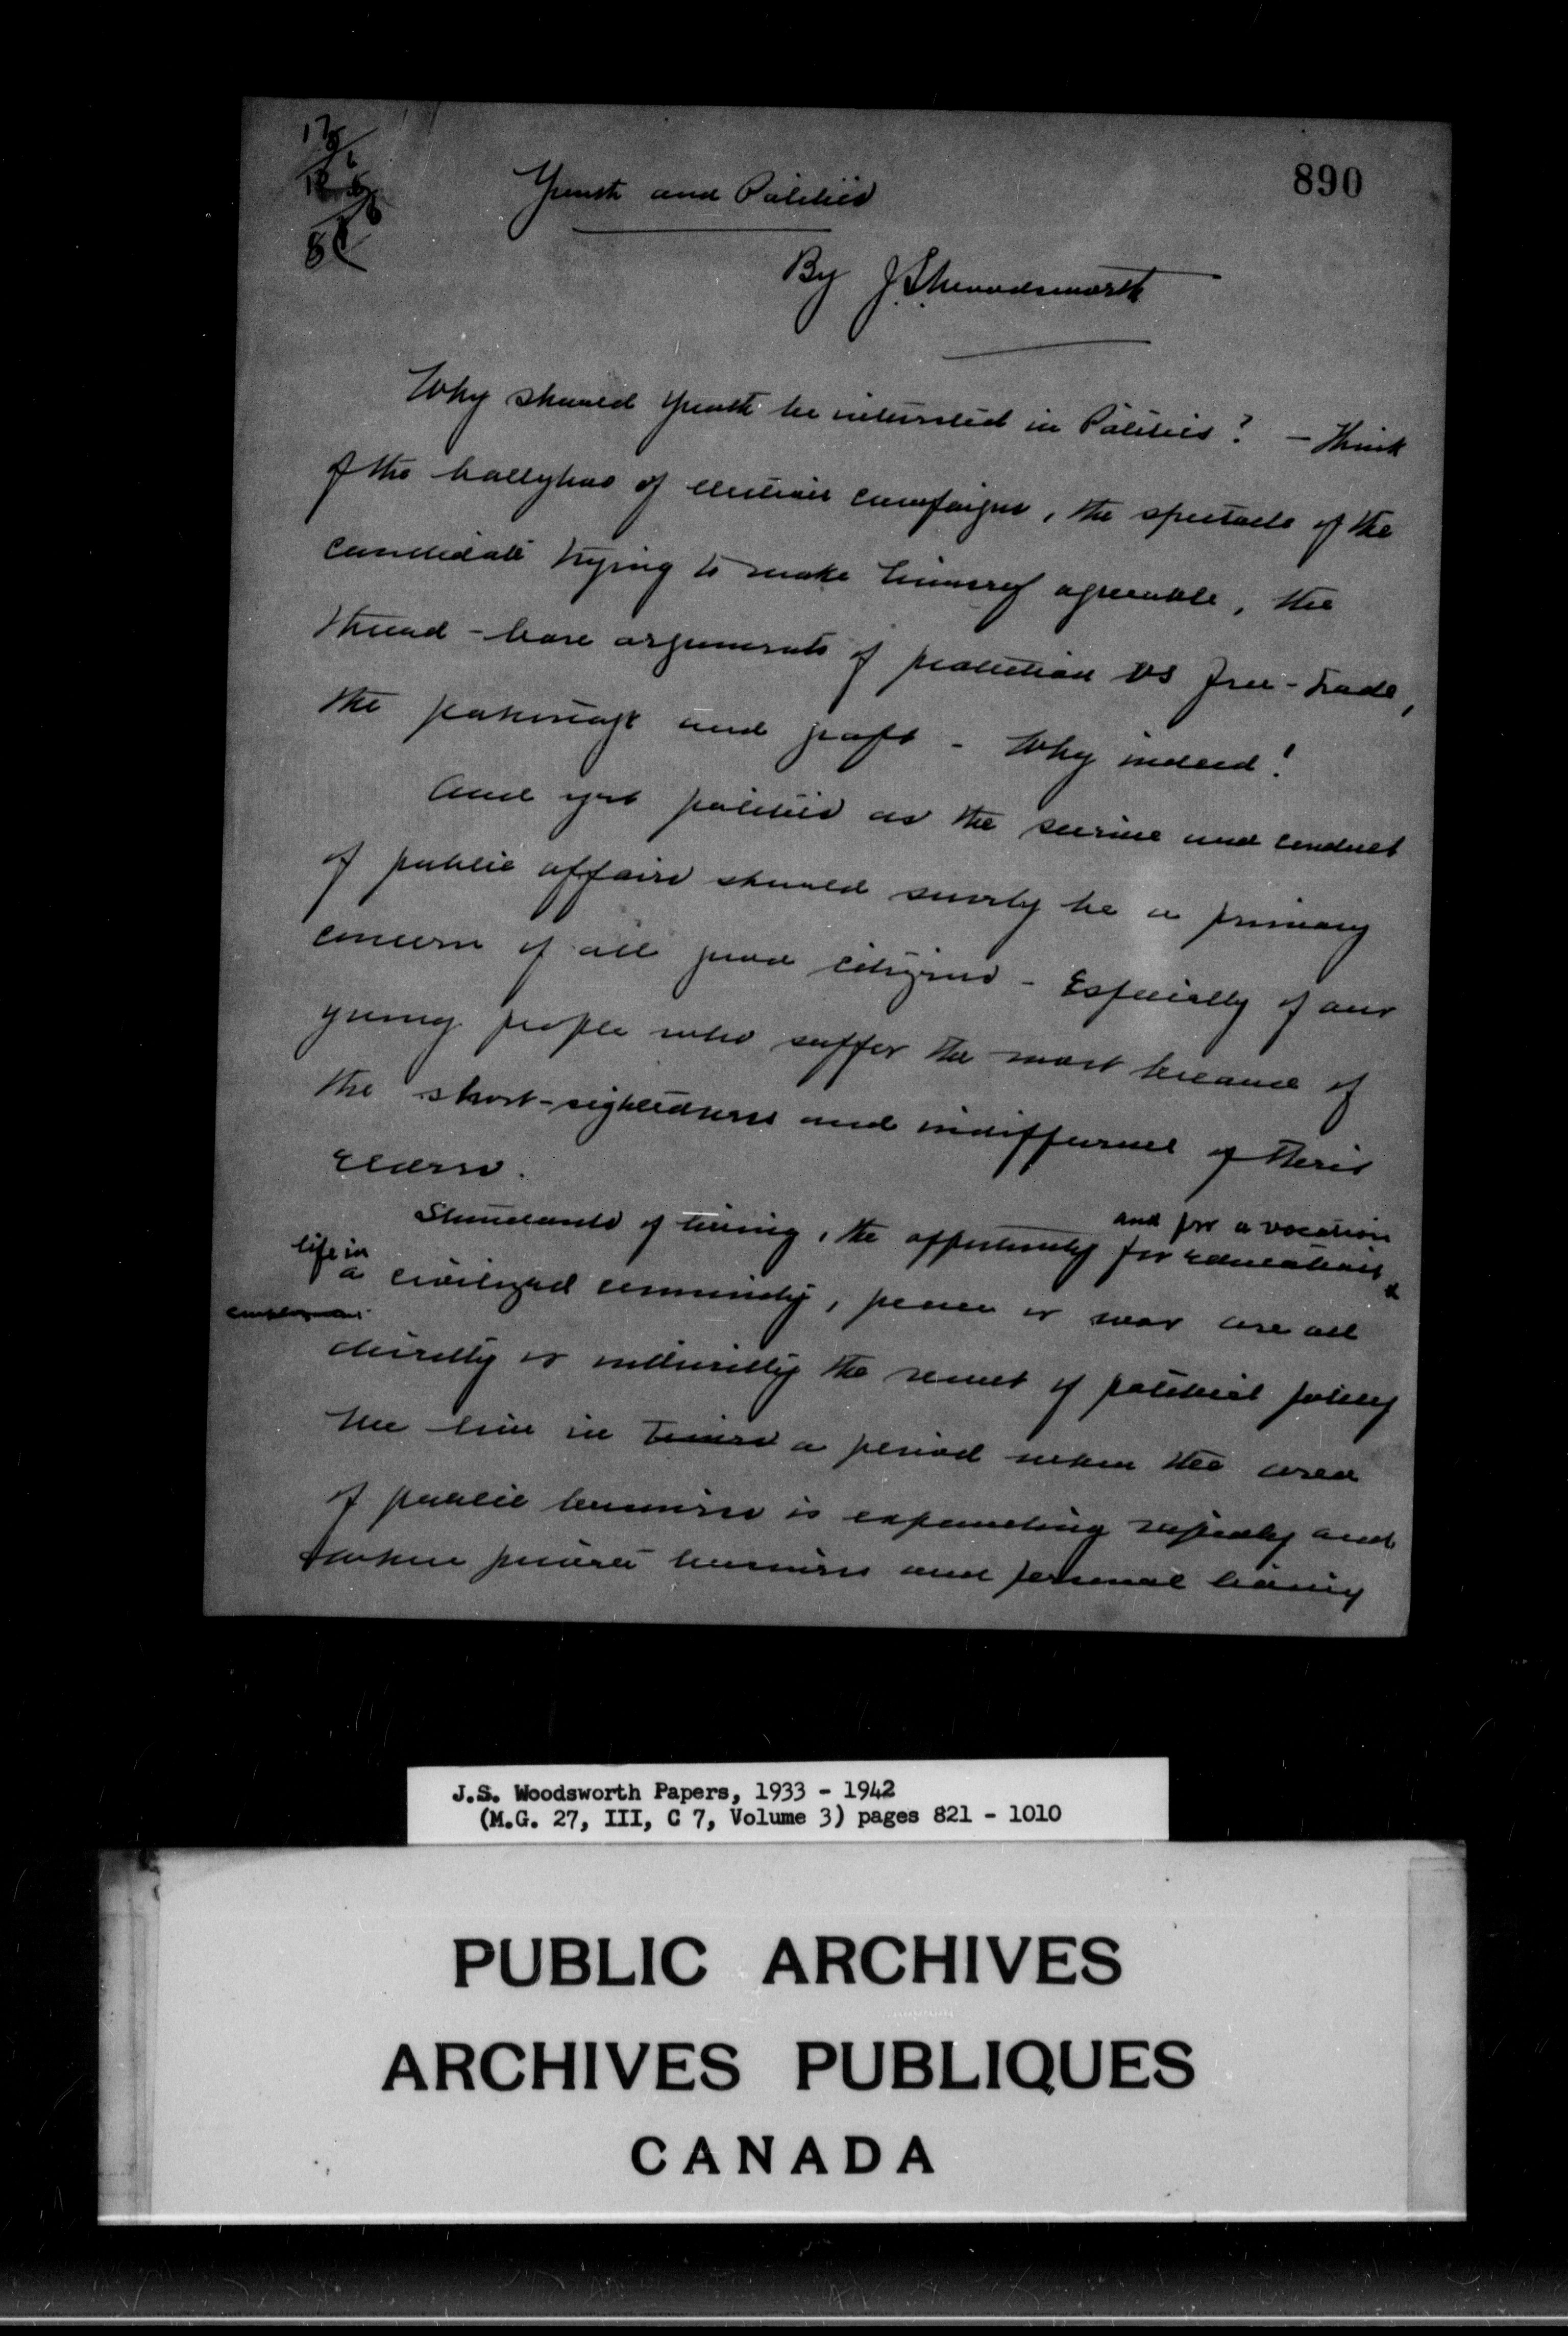 890
Youth and Politics
By J.S. Woodsworth
Why should youth be interested in Politics? – Think
of the ballyhoo of election campaigns, the spectacle of the
candidate trying to make himself agreeable, the
thread-bare arguments of protection vs free-trade,
the patronage and graft – Why indeed!
And yet politics as the science and conduct
of public affairs should surely be a primary
concern of all good citizens – Especially of our
young people who suffer the most because of
the short-sightedness and indifference of their
elders.
and for a vocation
Standards of living, the opportunity for education
life in
a civilized community, peace or war are all
directly or indirectly the result of political policy
We live in a period when the area
of public business is expanding rapidly and
when private business and personal living
J.S. Woodsworth Papers, 1933 - 1942
(M.G. 27, III, C 7, Volume 3) pages 821 - 1010
PUBLIC ARCHIVES
ARCHIVES PUBLIQUES
CANADA